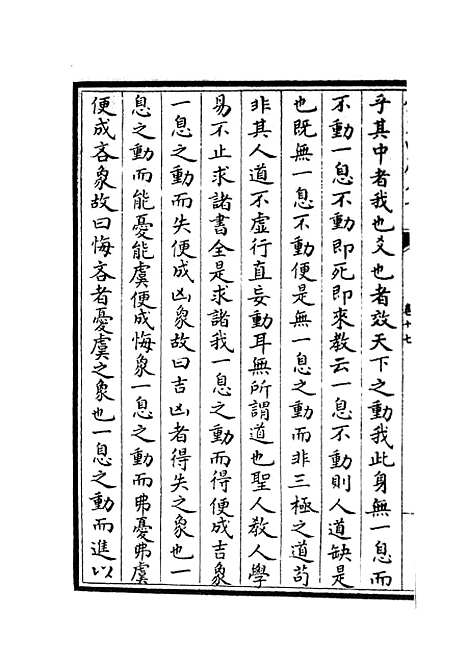 卷十七
乎其中者我也爻也者效天下之動我此身無一息而
不動一息不動即死即來教云一息不動則人道缺是
也既無一息不動便是無一息之動而非三極之道苟
非其人道不虛行直妄動耳無所謂道也聖人教人學
易不止求諸書全是求諸我一息之動而得便成吉象
一息之動而失便成凶象故曰吉凶者得失之象也一
息之動而能憂能虞便成悔象一息之動而弗憂弗虞
便成吝象故曰悔吝者憂虞之象也一息之動而進以